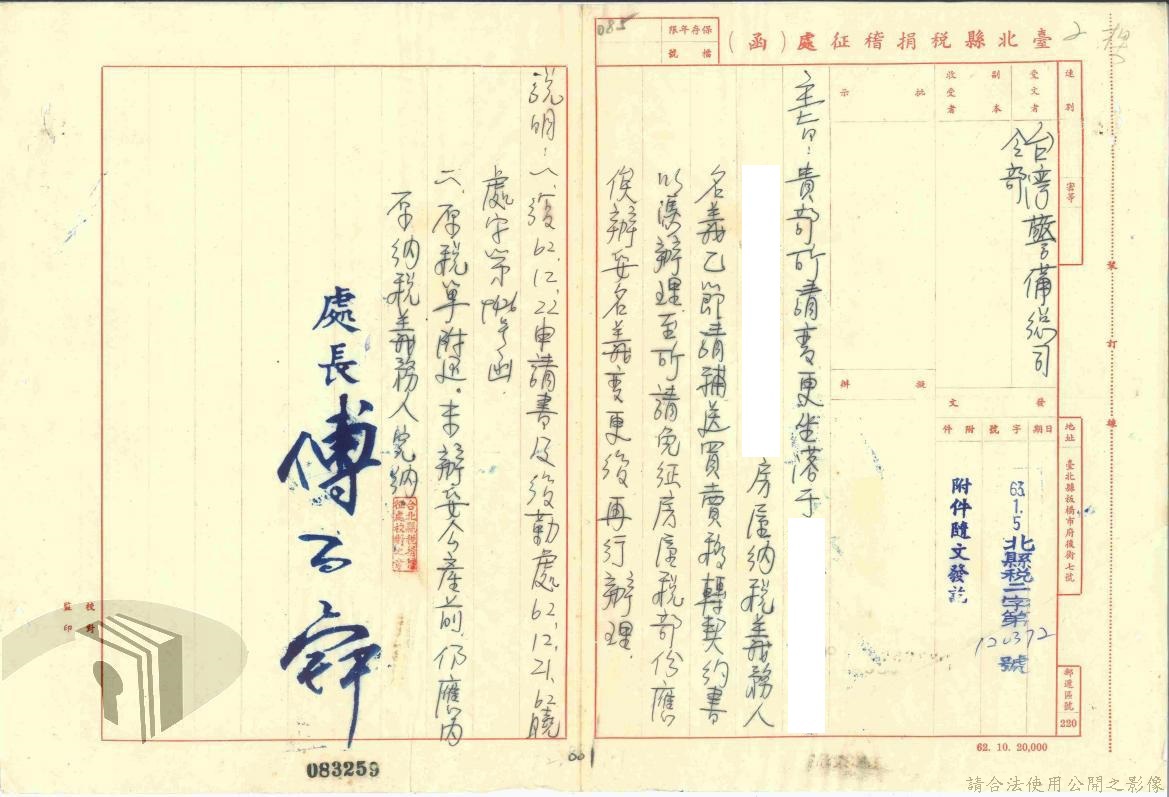 臺北縣稅捐稽征處（函）
保存年限
檔號
085
2
速別
密等
受文者
台灣警備總司
令部
副本
收受者
批示
擬辦
發文
日期
字號
附件
63.1.5
北縣稅二字第
120372
號
附件隨文發訖
地址
臺北縣板橋市府後街七號
郵遞區號
220
裝訂線
主旨：貴部所請變更坐落于
房屋納稅義務人
名義乙節請補送買賣移轉契約書
以憑辦理至所請免征房屋稅部份應
俟辦妥名義變更後再行辦理.
說明：一、復62.12.22申請書及後勤處62.12.21.62曉
處字第9426号函.
二、原稅單附還。未辦妥公產前，仍應由
原納稅義務人完納
處長
校對
監印
083259
62. 10. 20,000
請合法使用公開之影像